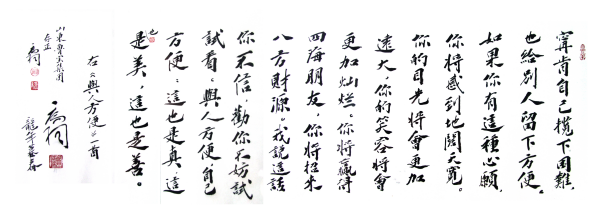 寧肯自己攬下困難，
也給別人留下方便。
如果你有這種心願，
你將感到地闊天寬。
你的目光將會更加
遠大，你的笑容將會
更加灿烂。你將贏得
四海朋友，你將招来
八方財源。我説這話
你不信，勸你不妨試
試看：與人方便，自己
方便：這也是真，這
也是美，這也是善。
右《與人方便》一首